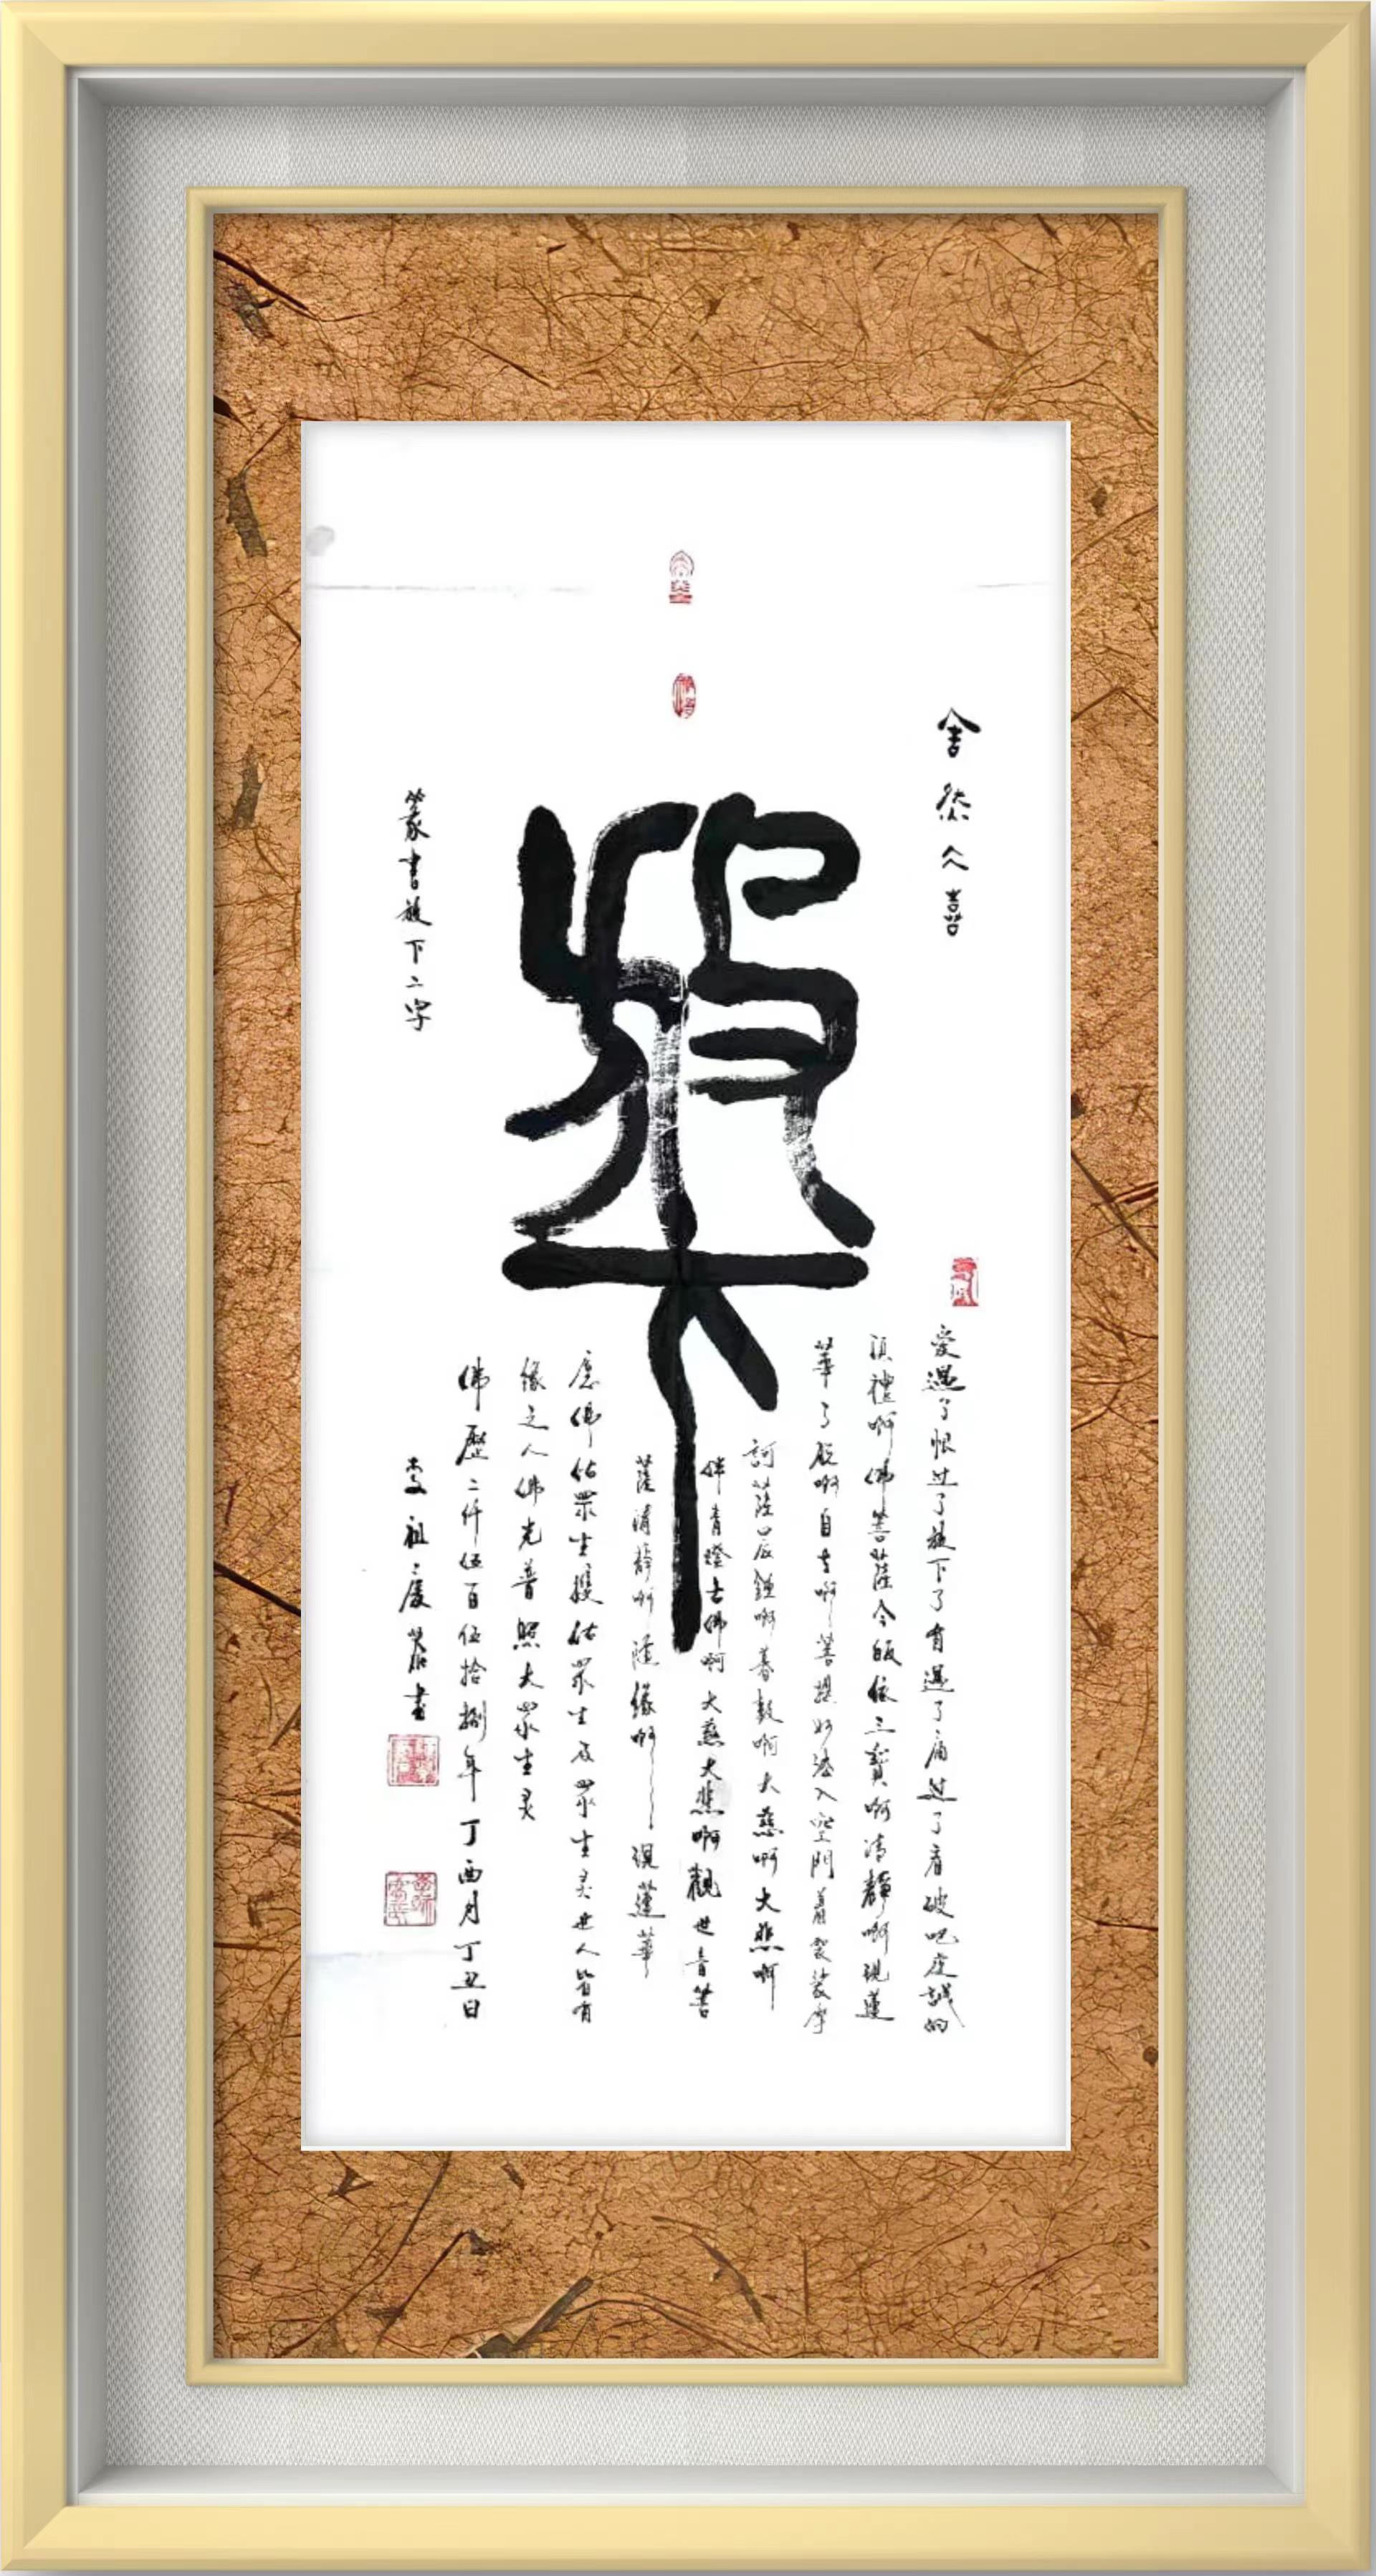 舍然久喜
放下
篆書放下二字
愛過了恨过了放下了有過了痛过了看破吧虔誠的
頂禮啊佛菩薩今皈依三寶啊清靜啊現蓮
華了脫啊自在啊菩提好法入空門着袈裟摩
訶薩晨鐘啊暮鼓啊大慈啊大悲啊
伴青燈古佛啊大慈大悲啊觀世音菩
薩清靜啊隨緣啊現蓮華
愿佛佑眾生擭佑眾生及眾生灵世人皆有
緣之人佛光普照大眾生灵
佛歷二仟伍百伍拾捌年丁酉月丁丑日
李祖慶書